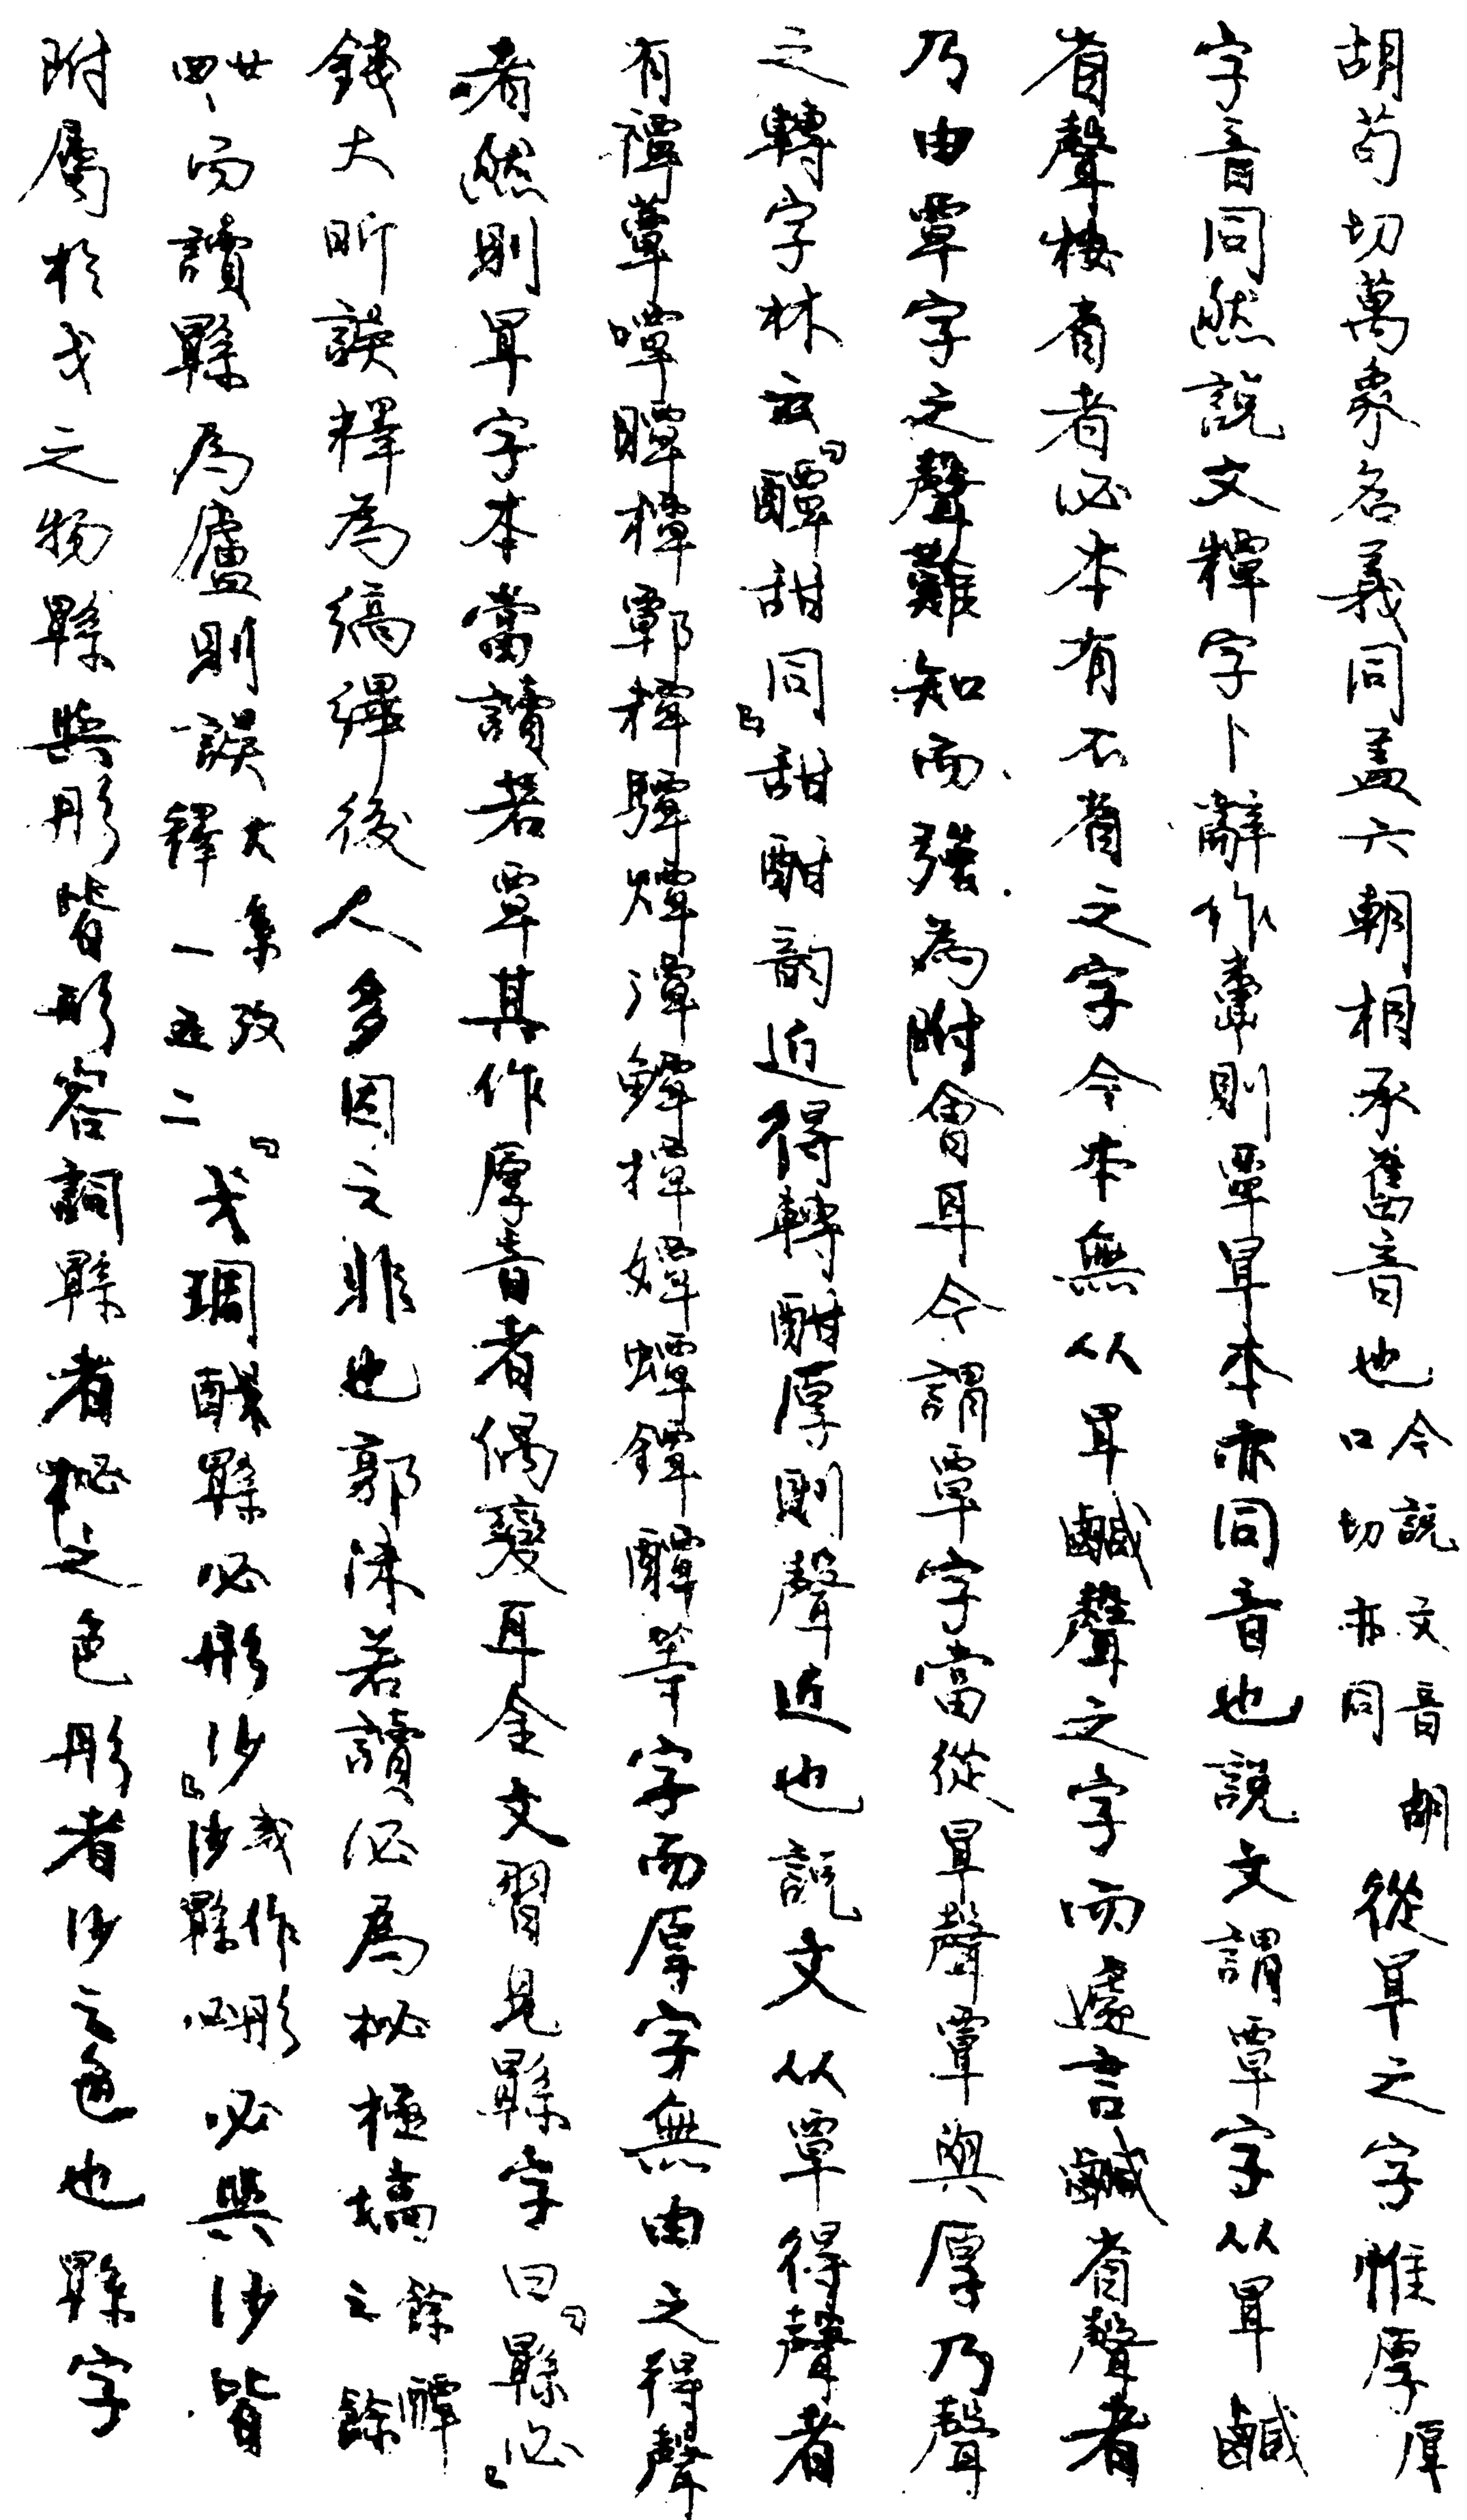 胡苟切萬象名義同盖六朝相承舊音也今說文音胡口切亦同從㫗之字惟厚厚
字音同然說文糧字卜辭作𣡌則覃㫗本亦同音也說文謂覃字从㫗鹹
省聲棲省者必本有不省之字今本無从㫗鹹聲之字而遽言鹹省聲者
乃由覃字之聲難知而強為附會耳今謂覃字當從㫗聲覃與厚乃聲
之轉字林云「醰甜同」甜酣韵近得轉酣厚則聲近也說文从覃得聲者
有禫蕈嘾瞫橝鄲橝驔燂潭鱏撢嬋蟫鐔醰等字而厚字無由之得聲
者然則㫗字本當讀若覃其作厚音者偶變耳金文習見縣字曰「縣必」
錢大昕誤釋為縞繹後人多因之非也郭沫若讀必為柲極塙之餘醰餘
卌四而讀縣為廬則誤大系攷釋一五二「戈琱㦸縣必彤沙」或作彤沙縣必必與沙皆
附屬於戈之物縣與彤皆形容詞縣者柲之色彤者沙之色也縣字